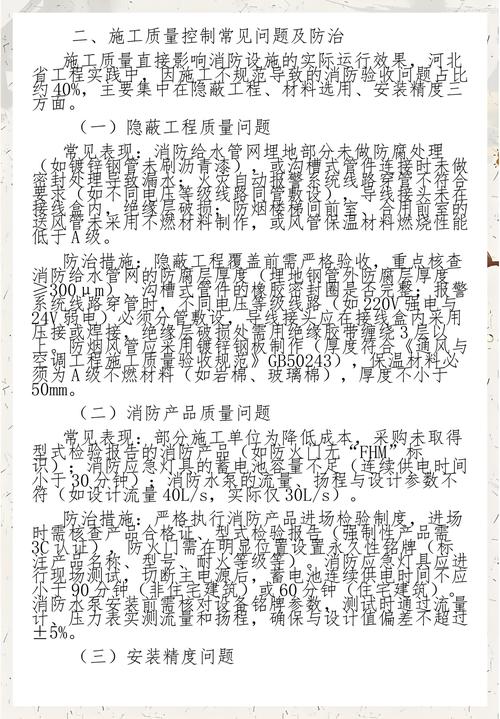 二、施工质量控制常见问题及防治
施工质量直接影响消防设施的实际运行效果，河北
省工程实践中，因施工不规范导致的消防验收问题占比
约40%，主要集中在隐蔽工程、材料选用、安装精度三
方面。
（一）隐蔽工程质量问题
常见表现：消防给水管网埋地部分未做防腐处理
（如镀锌钢管未刷沥青漆），或沟槽式管件连接时未做
密封处理导致漏水；火灾自动报警系统线路穿管不符合
要求（如不同电压等级线路同管敷设），导线接头未在
接线盒内，绝缘层破损；防烟楼梯间前室、合用前室的
送风管未采用不燃材料制作，或风管保温材料燃烧性能
低于A级。
防治措施：隐蔽工程覆盖前需严格验收，重点核查
消防给水管网的防腐层厚度（埋地钢管外防腐层厚度
≥300μm）、沟槽式管件的橡胶密封圈是否完整；报警
系统线路穿管时，不同电压等级线路（如220V强电与
24V弱电）必须分管敷设，导线接头应在接线盒内采用
压接或焊接，绝缘层破损处需用绝缘胶带缠绕3层以
上。防烟风管应采用镀锌钢板制作（厚度符合《通风与
空调工程施工质量验收规范》GB50243），保温材料必
须为A级不燃材料（如岩棉、玻璃棉），厚度不小于
50mm。
（二）消防产品质量问题
常见表现：部分施工单位为降低成本，采购未取得
型式检验报告的消防产品（如防火门无“FHM”标
识）；消防应急灯具的蓄电池容量不足（连续供电时间
小于30分钟）；消防水泵的流量、扬程与设计参数不
符（如设计流量40L/s，实际仅30L/s）。
防治措施：严格执行消防产品进场检验制度，进场
时需核查产品合格证、型式检验报告（强制性产品需
3C认证），防火门需在明显位置设置永久性铭牌（标
注产品名称、型号、耐火等级等）。消防应急灯具应进
行现场测试，切断主电源后，蓄电池连续供电时间不应
小于90分钟（非住宅建筑）或60分钟（住宅建筑）。
消防水泵安装前需核对设备铭牌参数，测试时通过流量
计、压力表实测流量和扬程，确保与设计值偏差不超过
±5%。
（三）安装精度问题